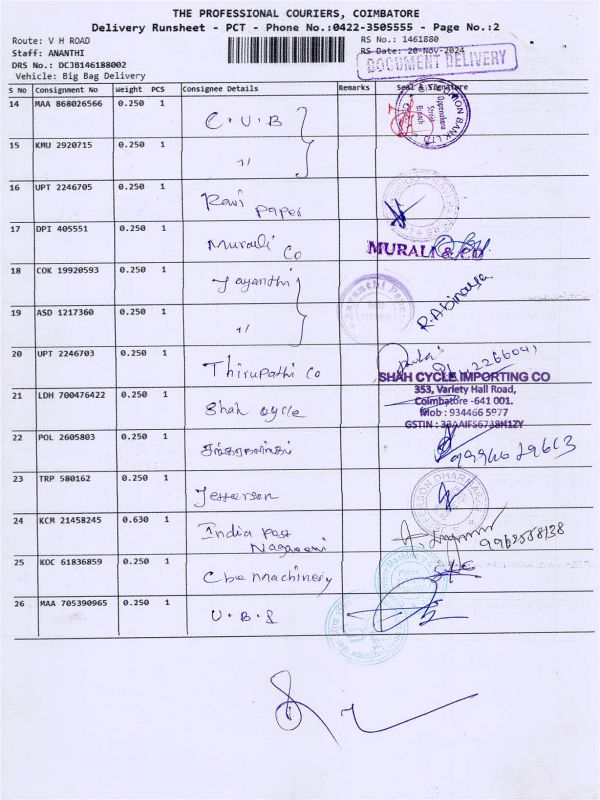 THE PROFESSIONAL COURIERS, COIMBATORE
Delivery Runsheet - PCT - Phone No.:0422-3505555 - Page No.:2
Route: V H ROAD
RS No.: 1461880
Staff: ANANTHI
RS Date: 20-Nov-2024
DRS No.: DCJB146188002
DOCUMENT DELIVERY
Vehicle: Big Bag Delivery
S No Consignment No Weight PCS Consignee Details Remarks Seal & Signature
14 MAA 868026566 0.250 1 C.U.B
15 KMU 2920715 0.250 1 "
16 UPT 2246705 0.250 1 Ravi Paper
17 DPI 405551 0.250 1 Murali Co
MURALI & CO
18 COK 19920593 0.250 1 Jayanthi
19 ASD 1217360 0.250 1 "
R. Abinaya
20 UPT 2246703 0.250 1 Thirupathi Co
SHAH CYCLE IMPORTING CO
21 LDH 700476422 0.250 1 Shah cycle
353, Variety Hall Road,
Coimbatore -641 001.
Mob : 934466 5977
GSTIN : 33AAIFS6738H1ZY
22 POL 2605803 0.250 1
23 TRP 580162 0.250 1 Jefferson
24 KCM 21458245 0.630 1 India Post
25 KOC 61836859 0.250 1 Cbe Machinery
26 MAA 705390965 0.250 1 U.B.S